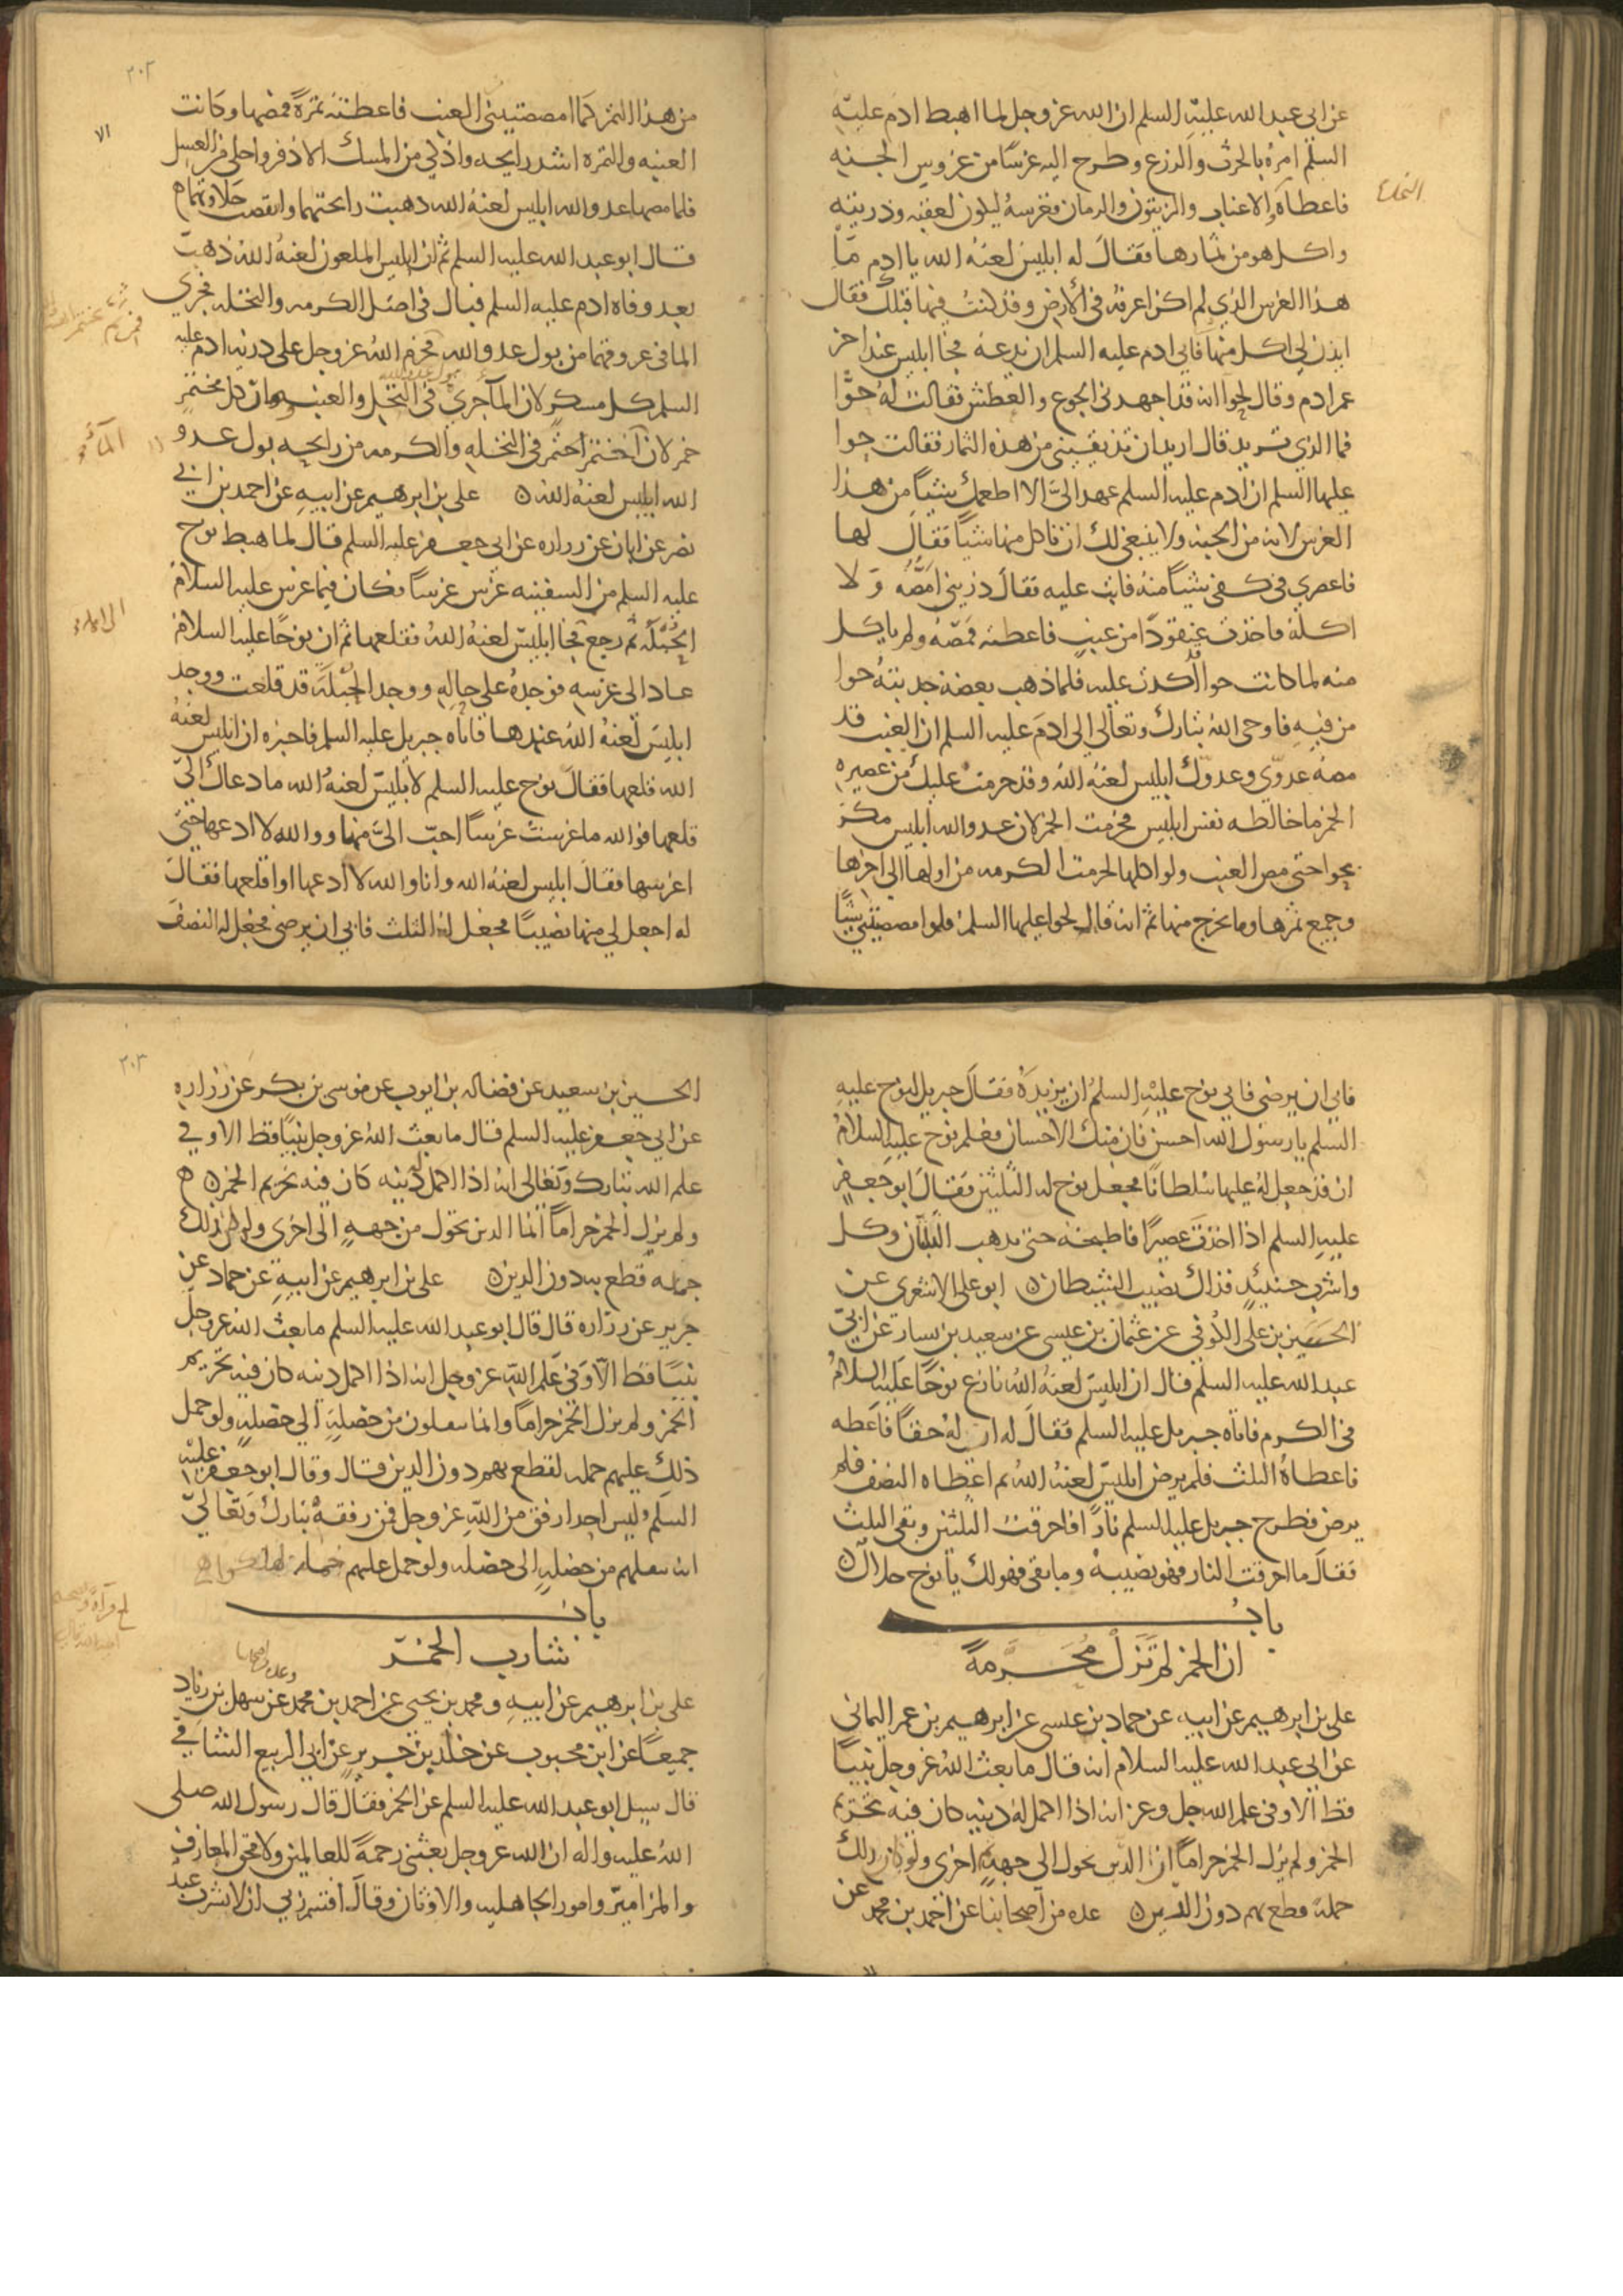 عن ابى عبد الله عليه السلم ان الله عز وجل لما اهبط ادم عليه
السلم امره بالحرث والزرع وطرح اليه غرسا من غروس الجنه
فاعطاه الاعناب والزيتون والرمان فغرسه ليكون لعقبه وذريته
واكل هو من ثمارها فقال له ابليس لعنه الله يا ادم ما
هذا الغرس الذي لم اكن اعرفه فى الارض وقد كنت فيها قبلك فقال
ايذن لي اكل منها فابى ادم عليه السلم ان يدعه فجا ابليس عند اخر
عمر ادم وقال لحوا انه قد اجهدنى الجوع والعطش فقالت له حوا
فما الذي تريد قال اريد ان تذيقينى من هذه الثمار فقالت حوا
عليها السلم ان ادم عليه السلم عهد الى الا اطعمك شيا من هذا
الغرس لانه من الجنه ولا ينبغى لك ان تاكل منها شيا فقال لها
فاعصري فى كفى شيا منه فابت عليه فقال ذرينى امصه ولا
اكله فاخذت عنقودا من عنب فاعطته فمصه ولم ياكل
منه لما كانت حوا اكدت عليه فلما ذهب يعضه جذبته حوا
من فيه فاوحى الله تبارك وتعالى الى ادم عليه السلم ان العنب قد
مصه عدوي وعدوك ابليس لعنه الله وقد حرمت عليك من عصيره
الخمر ما خالطه نفس ابليس فحرمت الخمر لان عدو الله ابليس مكر
بحوا حتى مص العنب ولو اكلها لحرمت الكرمه من اولها الى اخرها
وجميع ثمرها وما يخرج منها ثم انه قال لحوا عليها السلم فلو امصصتنى شيا
٢٠٢
من هذا الثمر كما امصصتينى العنب فاعطته تمرة فمصها وكانت
العنبه والتمره اشد رايحه واذكى من المسك الاذفر واحلى من العسل
فلما مصها عدو الله ابليس لعنه الله ذهبت رايحتهما وانقصت حلاوتهما
قال ابو عبد الله عليه السلم ثم ان ابليس الملعون لعنه الله ذهب
بعد وفاه ادم عليه السلم فبال فى اصل الكرمه والنخله فجري
الما فى عروقهما من بول عدو الله فحرم الله عز وجل على ذريه ادم عليه
السلم كل مسكر لان الما جري ببول عدو الله فى النخل والعنب وصار كل مختمر
خمر لان الما اختمر فى النخله والكرمه من رايحه بول عدو
الله ابليس لعنه الله ه على بن ابرهيم عن ابيه عن احمد بن ابى
نصر عن ابان عن زراره عن ابى جعفر عليه السلم قال لما هبط نوح
عليه السلم من السفينه غرس غرسا فكان فيما غرس عليه السلام
الحبلة ثم رجع فجا ابليس لعنه الله فقلعها ثم ان نوحا عليه السلام
عاد الى غرسه فوجده على حاله ووجد الحبلة قد قلعت ووجد
ابليس لعنه الله عندها فاتاه جبريل عليه السلم فاخبره ان ابليس لعنه
الله قلعها فقال نوح عليه السلم لابليس لعنه الله ما دعاك الى
قلعها فوالله ما غرست غرسا احب الى منها ووالله لا ادعها حتى
اغرسها فقال ابليس لعنه الله وانا والله لا ادعها او اقلعها فقال
له اجعل لي منها نصيبا فجعل له الثلث فابى ان يرضى فجعل له النصف
فابى ان يرضى فابى نوح عليه السلم ان يزيده فقال جبريل لنوح عليه
السلم يا رسول الله احسن فان منك الاحسان فعلم نوح عليه السلام
ان قد جعل له عليها سلطانا فجعل نوح له الثلثين فقال ابو جعفر
عليه السلم اذا اخذت عصيرا فاطبخه حتى يذهب الثلثان وكل
واشرب حينئذ فذاك نصيب الشيطان ه ابو على الاشعرى عن
الحسين بن على الكوفى عن عثمان بن عيسى عن سعيد بن يسار عن ابى
عبد الله عليه السلم قال ان ابليس لعنه الله نازع نوحا عليه السلام
فى الكرم فاتاه جبريل عليه السلم فقال له ان له حقا فاعطه
فاعطاه الثلث فلم يرض ابليس لعنه الله ثم اعطاه النصف فلم
يرض فطرح جبريل عليه السلم نارا فاحرقت الثلثين وبقى الثلث
فقال ما احرقت النار فهو نصيبه وما بقى فهو لك يا نوح حلال ه
باب
ان الخمر لم تزل محرمة
على بن ابرهيم عن ابيه عن حماد بن عيسى عن ابرهيم بن عمر اليمانى
عن ابى عبد الله عليه السلام انه قال ما بعث الله عز وجل نبيا
قط الا وفى علم الله جل وعز انه اذا اكمل له دينه كان فيه تحريم
الخمر ولم يزل الخمر حراما ان الدين يحول الى جهة اخرى ولو كان ذلك
جملة قطع بهم دون الدين ه عده من اصحابنا عن احمد بن محمد عن
٢٠٣
الحسين بن سعيد عن فضاله بن ايوب عن موسى بن بكر عن زراره
عن ابى جعفر عليه السلم قال ما بعث الله عز وجل نبيا قط الا وفى
علم الله تبارك وتعالى انه اذا اكمل دينه كان فيه تحريم الخمر ه
ولم يزل الخمر حراما انما الدين يحول من جهة الى اخرى ولو كان ذلك
جملة قطع به دون الدين ه على بن ابرهيم عن ابيه عن حماد عن
حريز عن زراره قال قال ابو عبد الله عليه السلم ما بعث الله عز وجل
نبيا قط الا وفى علم الله عز وجل انه اذا اكمل دينه كان فيه تحريم
الخمر ولم يزل الخمر حراما وانما ينقلون من خصلة الى خصلة ولو حمل
ذلك عليهم جمله لقطع بهم دون الدين قال وقال ابو جعفر عليه
السلم وليس احد ارفق من الله عز وجل فمن رفقه تبارك وتعالى
انه ينقلهم من خصلة الى خصله ولو حمل عليهم جمله لهلكوا ه
باب
شارب الخمر
على بن ابرهيم عن ابيه ومحمد بن يحيى عن احمد بن محمد وعده من اصحابنا عن سهل بن زياد
جميعا عن ابن محبوب عن خالد بن جرير عن ابى الربيع الشامى
قال سيل ابو عبد الله عليه السلم عن الخمر فقال قال رسول الله صلى
الله عليه واله ان الله عز وجل بعثنى رحمة للعالمين ولامحق المعازف
والمزامير وامور الجاهليه والاوثان وقال اقسم ربى ان لا يشرب عبد